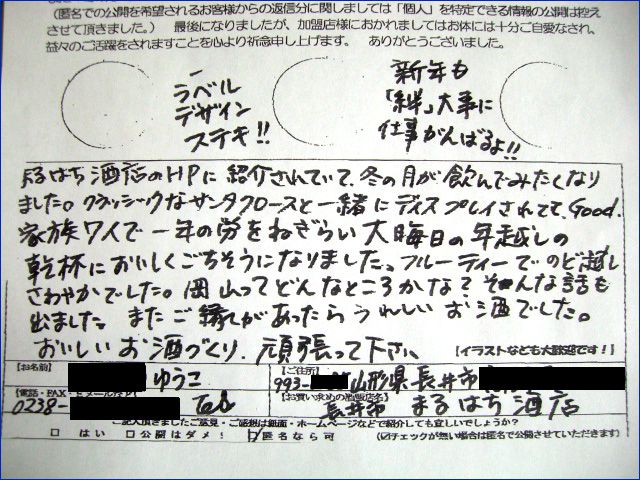 (匿名での公開を希望されるお客様からの返信分に関しましては「個人」を特定できる情報の公開は控え
させて頂きました。) 最後になりましたが、加盟店様におかれましてはお体には十分ご自愛なされ、
益々のご活躍をされますことを心より祈念申し上げます。 ありがとうございました。
ラベル
デザイン
ステキ!!
新年も
「絆」大事に
仕事がんばるよ!!
まるはち酒店のHPに紹介されていて、冬の月が飲んでみたくなり
ました。クラッシックなサンタクロースと一緒にディスプレイされてて、Good.
家族ワイで一年の労をねぎらい大晦日の年越しの
乾杯においしくごちそうになりました。フルーティーでのど越し
さわやかでした。岡山ってどんなところかな?そんな話も
出ました。またご縁があったらうれしいお酒でした。
おいしいお酒づくり、頑張って下さい
【イラストなども大歓迎です!】
【お名前】
ゆうこ
【ご住所】
993- 山形県長井市
【電話・FAX・Eメールなど】
0238-
【お買い求めの酒販店名】
長井市 まるはち酒店
ご記入頂きましたご意見・ご感想は紙面・ホームページなどで紹介しても宜しいでしょうか?
□ はい □ 公開はダメ! ☑ 匿名なら可 (☑チェックが無い場合は匿名で公開させていただきます)